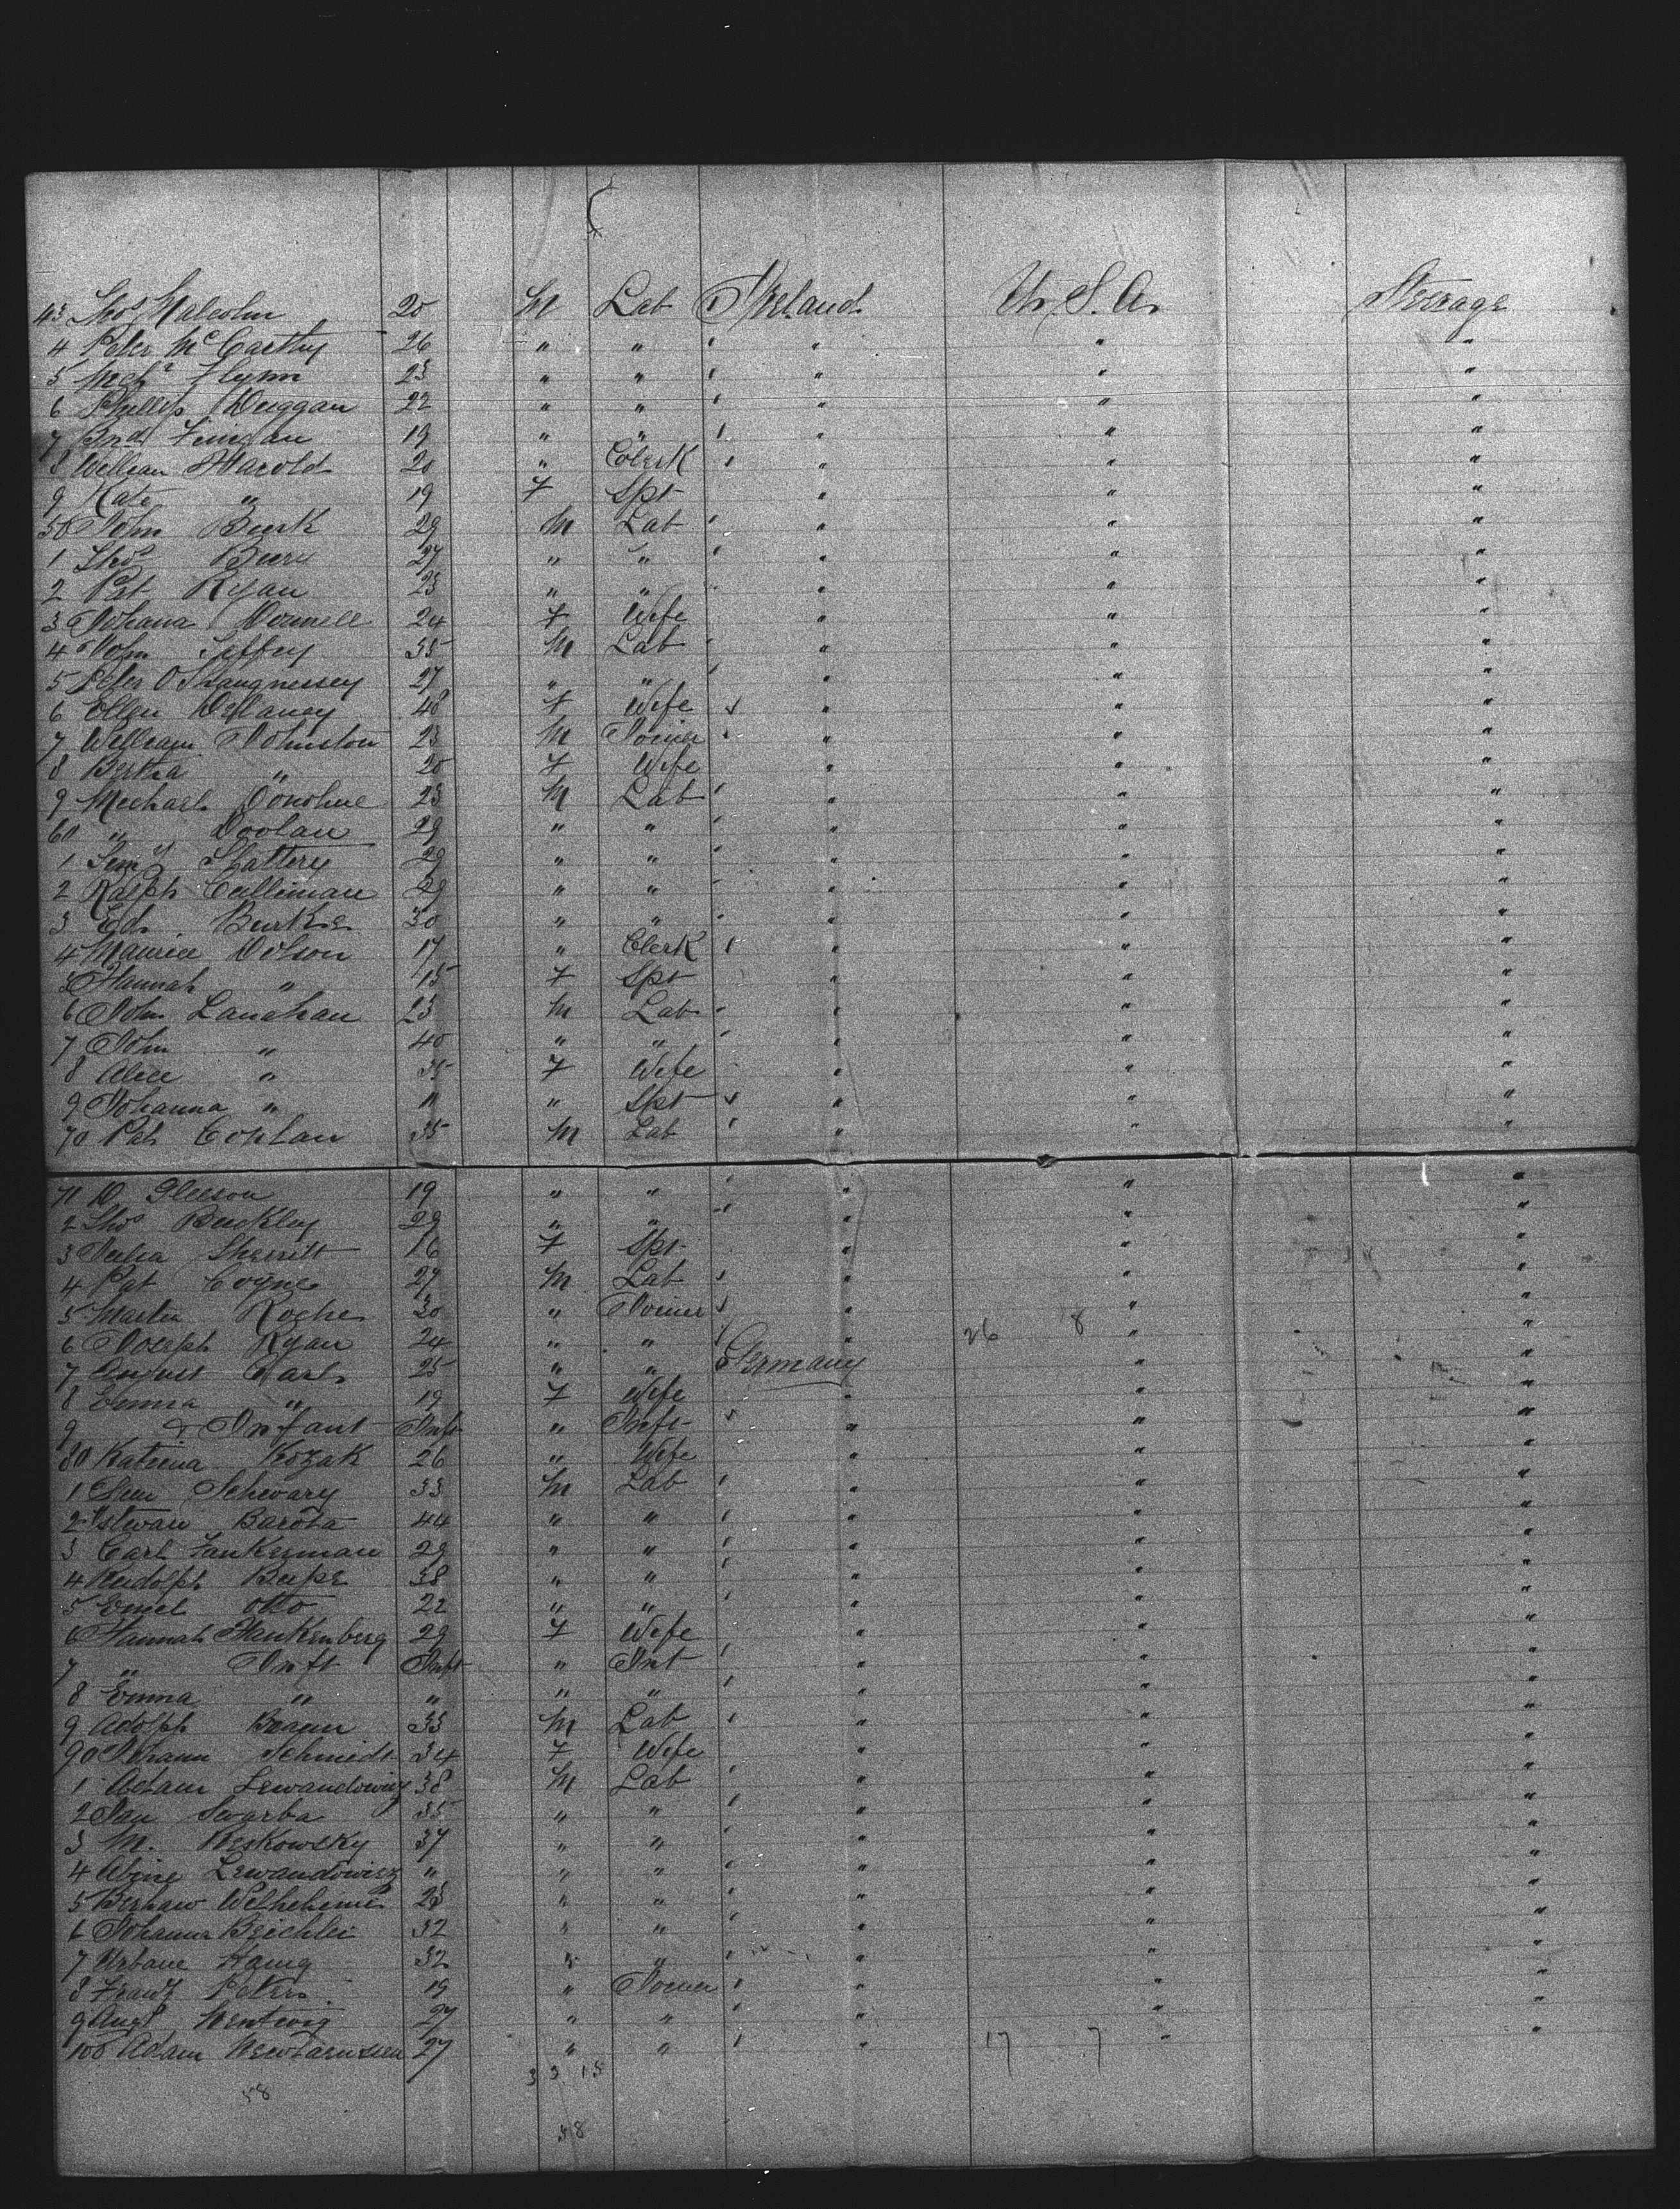 43 Thos Malcolm 20 M Lab Ireland U. S. A. Steerage
4 Peter McCarthy 26 " " " " "
5 Mchl Flynn 23 " " " " "
6 Phillip Duggan 22 " " " " "
7 Brnd Finigan 19 " " " " "
8 William Harold 20 " Clerk " " "
9 Kate " 19 F Spt " " "
50 John Burk 29 M Lab " " "
1 Thos Burk 27 " " " " "
2 Pat Ryan 23 " " " " "
3 Johana Donnell 24 F Wife " " "
4 John Jeffey 35 M Lab " " "
5 Peter O'Shaugnessey 27 " " " " "
6 Ellen Dellaney 48 F Wife " " "
7 William Johnston 23 M Joiner " " "
8 Bertha " 20 F Wife " " "
9 Michael Donohue 23 M Lab " " "
60 " Doolan 29 " " " " "
1 Jemy Slattery 29 " " " " "
2 Ralph Cullinane 29 " " " " "
3 Ed. Burke 30 " " " " "
4 Maurice Dolson 17 " Clerk " " "
5 Hannah " 15 F Spt " " "
6 John Lanahan 23 M Lab " " "
7 John " 40 " " " " "
8 Alice " 35 F Wife " " "
9 Johanna " 11 " Spt " " "
70 Pat Coplan 35 M Lab " " "
71 D. Gleeson 19 " " " " "
2 Thos Buckley 29 " " " " "
3 Julia Sherritt 16 F Spt " " "
4 Pat Coyne 27 M Lab " " "
5 Martin Roche 30 " Joiner " " "
6 Joseph Ryan 24 " " 26 8 " "
7 August Carl 25 " " Germany " "
8 Emma " 19 F Wife " " "
9 & Infant Inft " Inft " " "
80 Katrina Kozak 26 " Wife " " "
1 Schwary 33 M Lab " " "
2 Istwan Barota 44 " " " " "
3 Carl Fankerman 29 " " " " "
4 Rudolph 38 " " " " "
5 Emil Otto 22 " " " " "
6 Hannah Hankenberg 29 F Wife " " "
7 " Inft Inft " Inft " " "
8 Emma " " " " " " "
9 Adolph Braun 33 M Lab " " "
90 Johann Schmidt 34 F Wife " " "
1 Adam Lewandowicz 38 M Lab " " "
2 Jan Swarba 35 " " " " "
3 M. Reskowsky 37 " " " " "
4 Lewandowicz " " " " " "
5 28 " " " " "
6 Johanna Beichler 32 " " " " "
7 Urbane 32 " " " " "
8 Franz Peters 19 " Joiner " " "
9 Augt Hentwig 27 " " " " "
100 Adam 27 " " " 17 7 " "
33 15
58
58